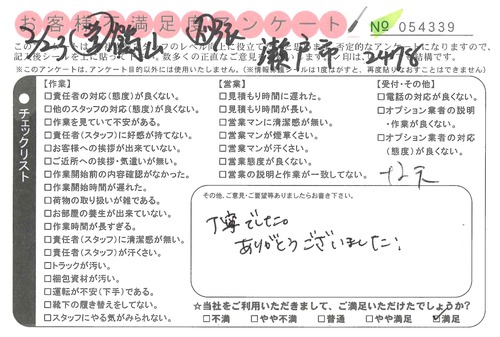 お客様不満足度アンケート
№ 054339
3/23
瀬戸市 2478
※このアンケートは、アンケート目的以外には使用いたしません。
チェックリスト
【作業】
□責任者の対応(態度)が良くない。
□他のスタッフの対応(態度)が良くない。
□作業を見ていて不安がある。
□責任者(スタッフ)に好感が持てない。
□お客様への挨拶が出来ていない。
□ご近所への挨拶・気遣いが無い。
□作業開始前の内容確認がなかった。
□作業開始時間が遅れた。
□荷物の取り扱いが雑である。
□お部屋の養生が出来ていない。
□作業時間が長すぎる。
□責任者(スタッフ)に清潔感が無い。
□責任者(スタッフ)が汗くさい。
□トラックが汚い。
□梱包資材が汚い。
□運転が不安(下手)である。
□靴下の履き替えをしてない。
□スタッフにやる気がみられない。
【営業】
□見積もり時間に遅れた。
□見積もり時間が長い。
□営業マンに清潔感が無い。
□営業マンが煙草くさい。
□営業マンが汗くさい。
□営業態度が良くない。
□営業の説明と作業が一致してない。
【受付・その他】
□電話の対応が良くない。
□オプション業者の説明
・作業が良くない。
□オプション業者の対応
(態度)が良くない。
その他、ご意見・ご要望等ありましたらお書き下さい。
丁寧でした。
ありがとうございました!
☆当社をご利用いただきまして、ご満足いただけたでしょうか?
□不満 □やや不満 □普通 □やや満足 ☑満足